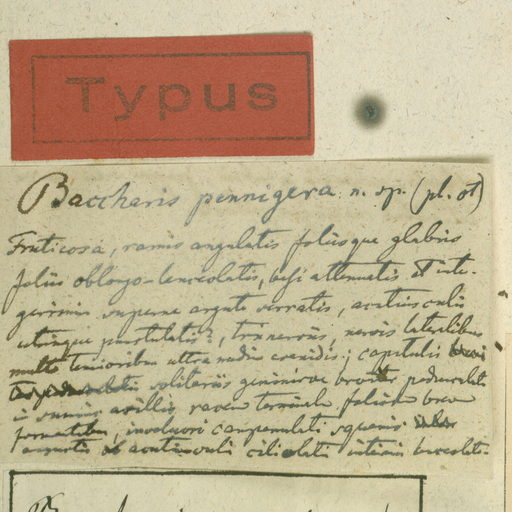 Typus
Baccharis pennigera n. sp. (pl. ♂)
Fruticosa, ramis angulatis foliisque glabris
foliis oblongo-lanceolatis, basi attenuatis et inte-
gerrimis superne argute serratis, acutiusculis
utrinque punctulatis?, trinerviis, nervis lateralibus
multo tenuioribus ultra medium evanidis; capitulis
solitariis geminisve pedunculatis
in summis axillis, raceum terminale foliosum
formantibus, involucri campanulati squamis
acutiusculis ciliolatis